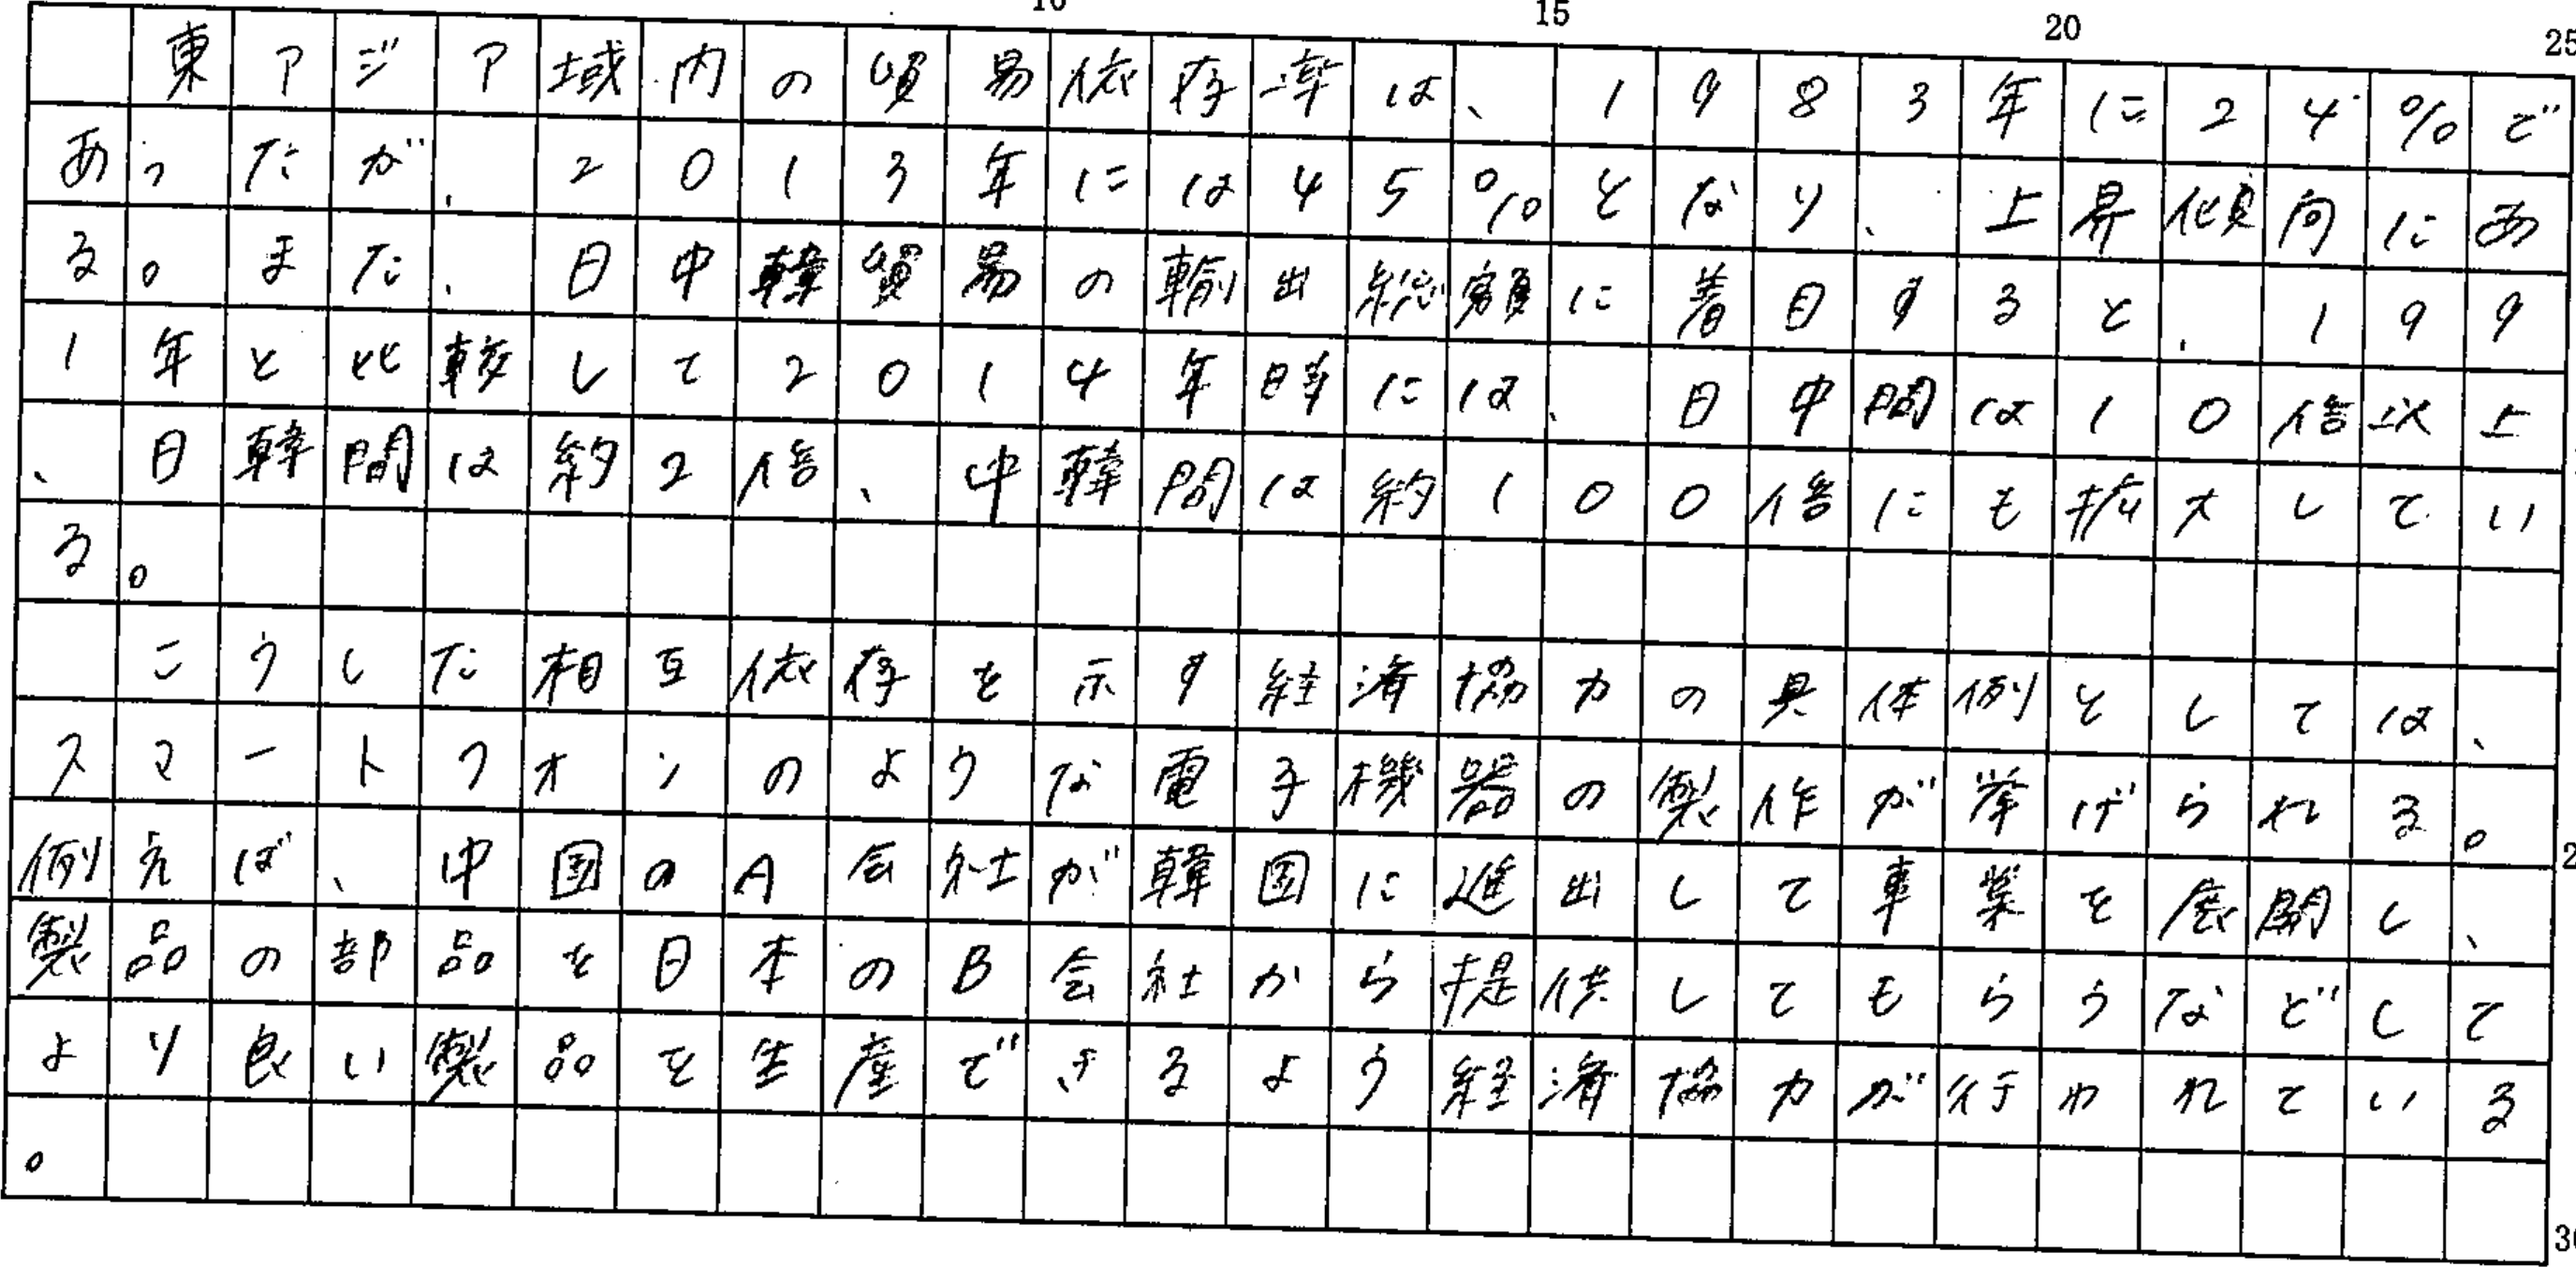 10 15 20 25
東アジア域内の貿易依存率は、1983年に24%で
あったが、2013年には45%となり、上昇傾向にあ
る。また、日中韓貿易の輸出総額に着目すると、199
1年と比較して2014年時には、日中間は10倍以上
、日韓間は約2倍、中韓間は約100倍にも拡大してい
る。
こうした相互依存を示す経済協力の具体例としては、
スマートフォンのような電子機器の製作が挙げられる。
例えば、中国のA会社が韓国に進出して事業を展開し、
製品の部品を日本のB会社から提供してもらうなどして
より良い製品を生産できるよう経済協力が行われている
。